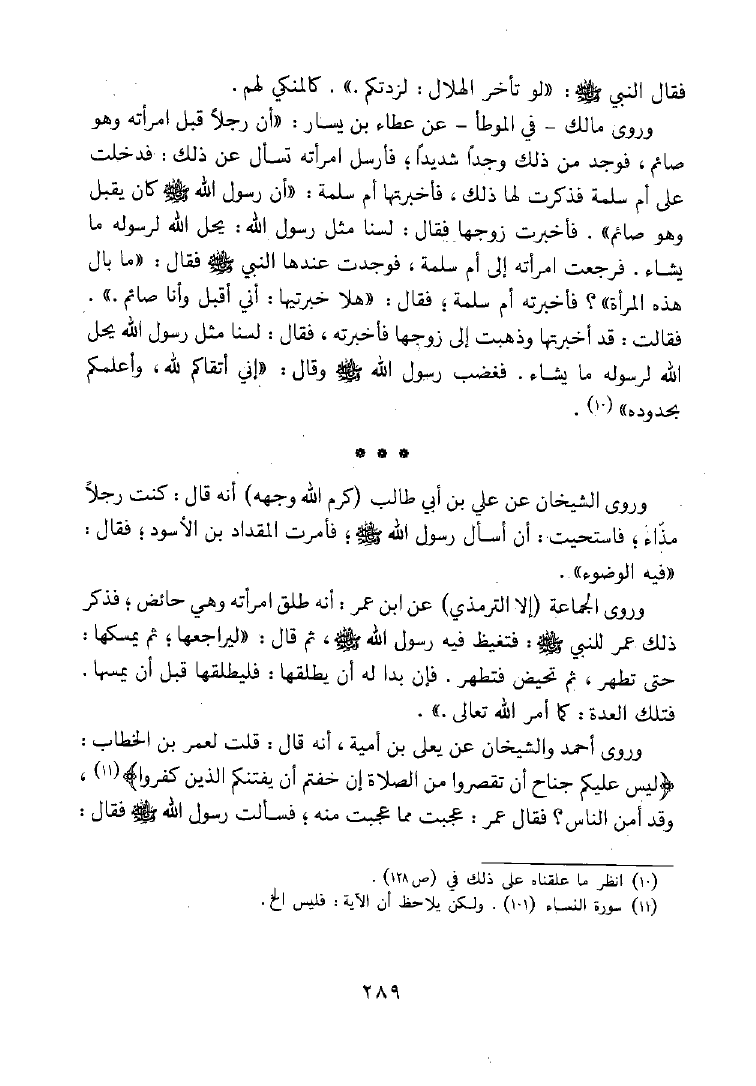 فقال النبي ﷺ : «لو تأخر الهلال : لزدتكم .» . كالمنكي لهم .
وروى مالك - في الموطأ - عن عطاء بن يسار : «أن رجلاً قبل امرأته وهو
صائم ، فوجد من ذلك وجداً شديداً ؛ فأرسل امرأته تسأل عن ذلك : فدخلت
على أم سلمة فذكرت لها ذلك ، فأخبرتها أم سلمة : «أن رسول الله ﷺ كان يقبل
وهو صائم» . فأخبرت زوجها فقال : لسنا مثل رسول الله : يحل الله لرسوله ما
يشاء . فرجعت امرأته إلى أم سلمة ، فوجدت عندها النبي ﷺ فقال : «ما بال
هذه المرأة» ؟ فأخبرته أم سلمة ؛ فقال : «هلا خبرتيها : أني أقبل وأنا صائم .» .
فقالت : قد أخبرتها وذهبت إلى زوجها فأخبرته ، فقال : لسنا مثل رسول الله يحل
الله لرسوله ما يشاء . فغضب رسول الله ﷺ وقال : «إني أتقاكم لله ، وأعلمكم
بحدوده» (١٠) .
* * *
وروى الشيخان عن علي بن أبي طالب (كرم الله وجهه) أنه قال : كنت رجلاً
مذّاء ؛ فاستحيت : أن أسأل رسول الله ﷺ ؛ فأمرت المقداد بن الأسود ؛ فقال :
«فيه الوضوء» .
وروى الجماعة (إلا الترمذي) عن ابن عمر : أنه طلق امرأته وهي حائض ؛ فذكر
ذلك عمر للنبي ﷺ : فتغيظ فيه رسول الله ﷺ ، ثم قال : «ليراجعها ؛ ثم يمسكها :
حتى تطهر ، ثم تحيض فتطهر . فإن بدا له أن يطلقها : فليطلقها قبل أن يمسها .
فتلك العدة : كما أمر الله تعالى .» .
وروى أحمد والشيخان عن يعلى بن أمية ، أنه قال : قلت لعمر بن الخطاب :
﴿ليس عليكم جناح أن تقصروا من الصلاة إن خفتم أن يفتنكم الذين كفروا﴾ (١١) ،
وقد أمن الناس ؟ فقال عمر : عجبت مما عجبت منه ؛ فسألت رسول الله ﷺ فقال :
(١٠) انظر ما علقناه على ذلك في (ص ١٢٨) .
(١١) سورة النساء (١٠١) . ولكن يلاحظ أن الآية : فليس الخ .
٢٨٩